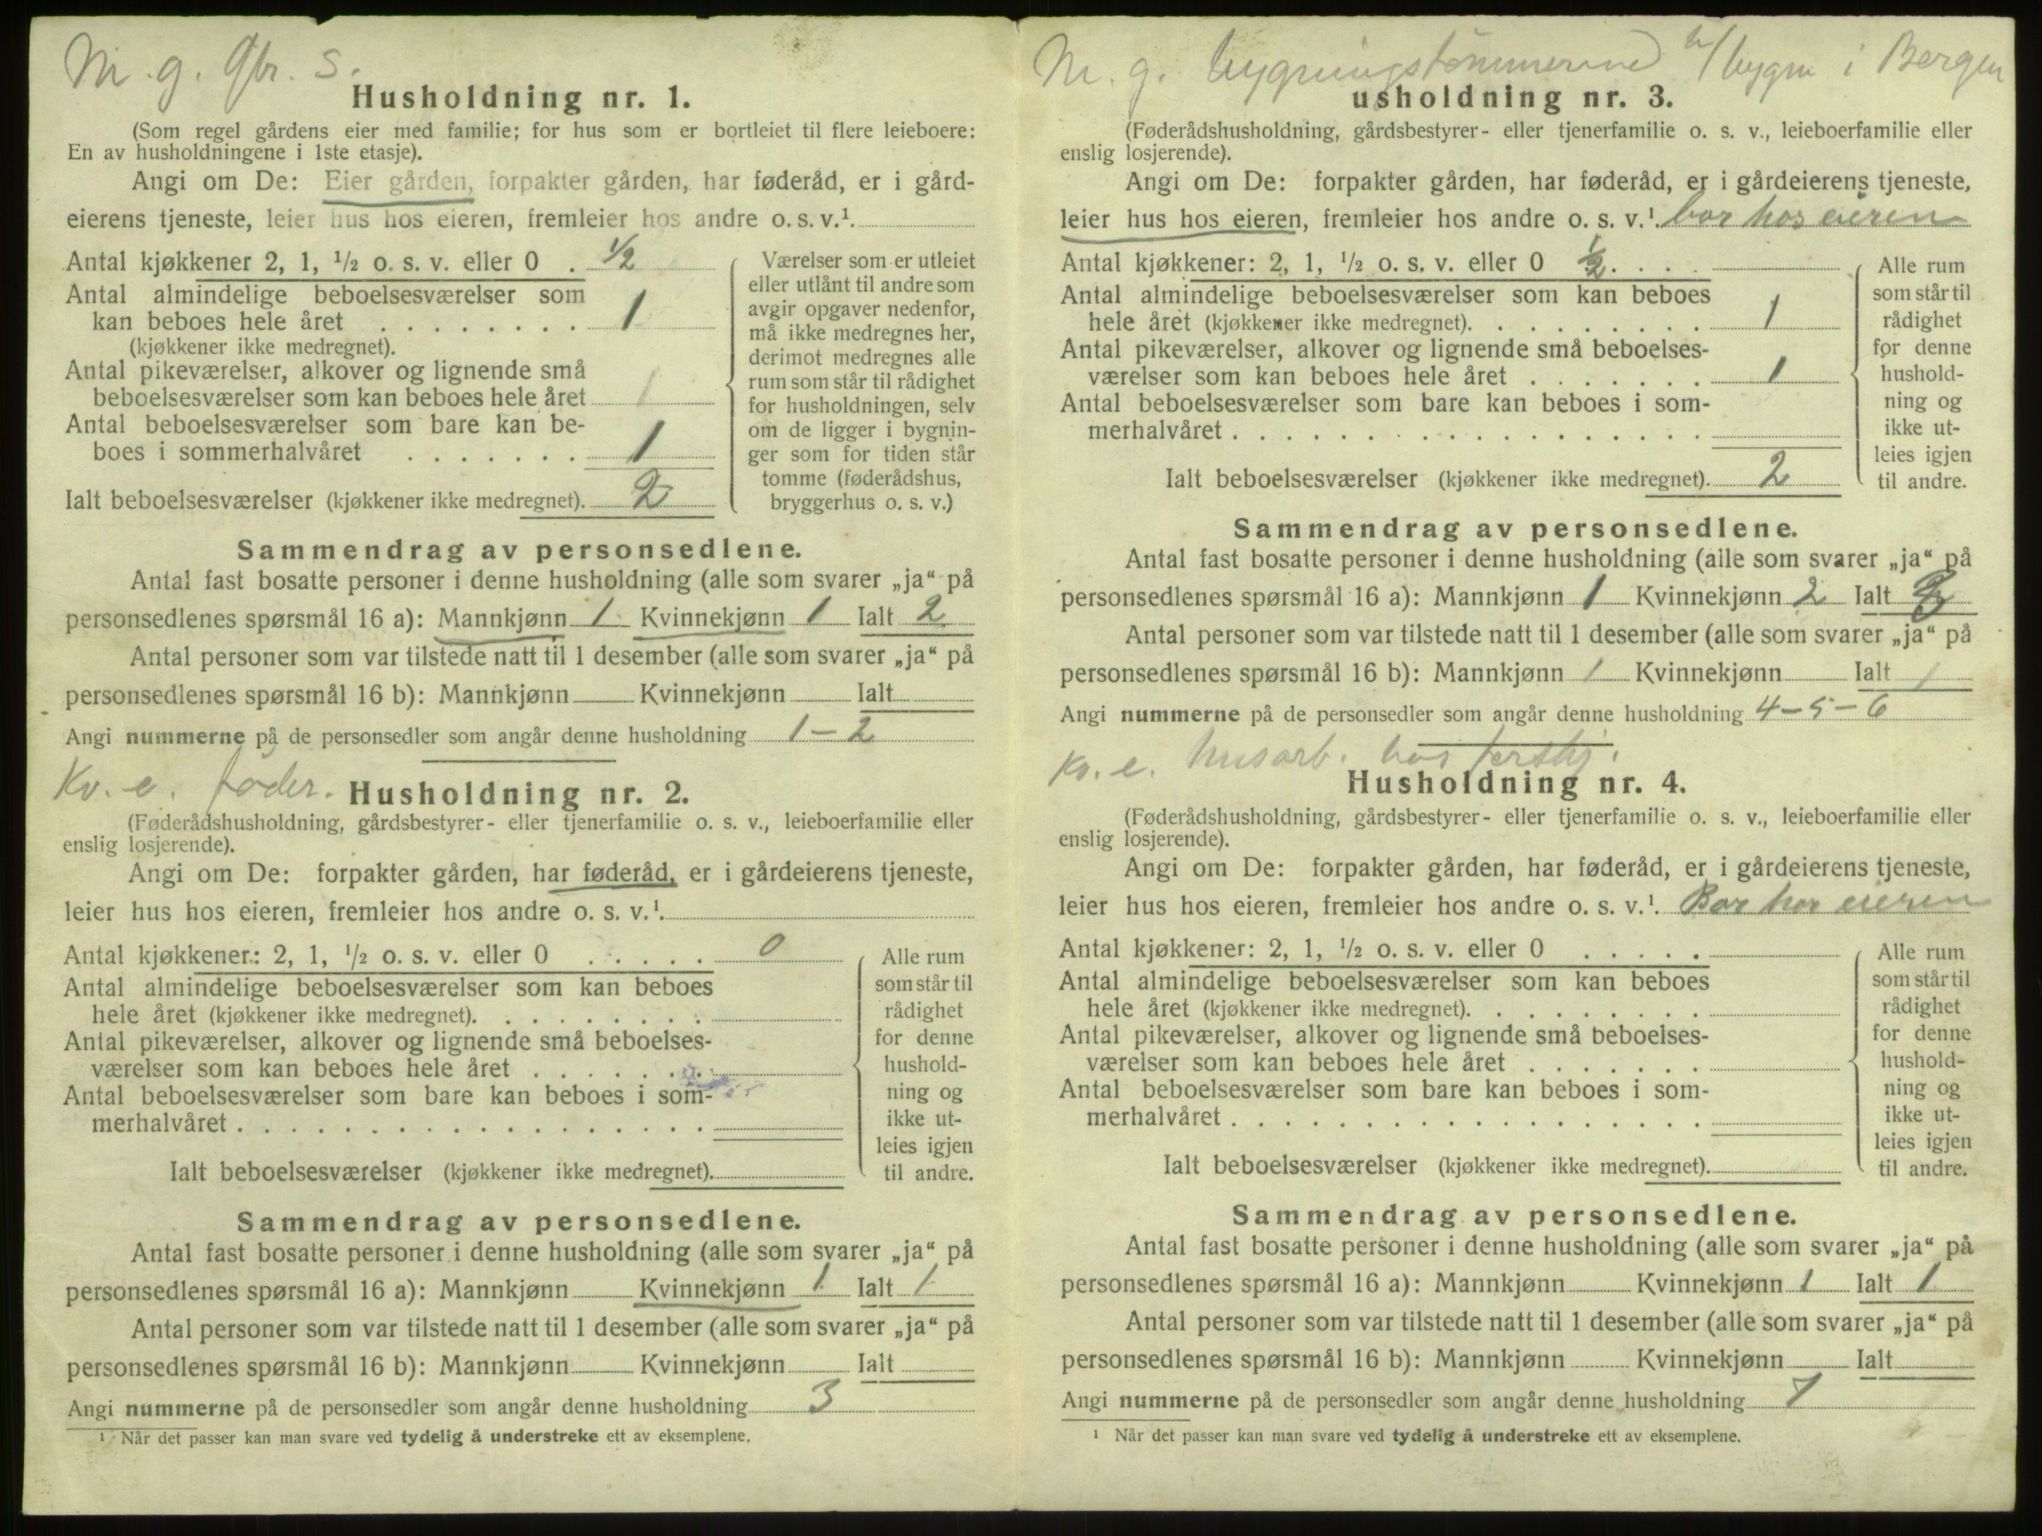 M. g. gbr. s.
Husholdning nr. 1.
(Som regel gårdens eier med familie; for hus som er bortleiet til flere leieboere:
En av husholdningene i 1ste etasje).
Angi om De: Eier gården, forpakter gården, har føderåd, er i gård-
eierens tjeneste, leier hus hos eieren, fremleier hos andre o. s. v.¹.
Antal kjøkkener 2, 1, ½ o. s. v. eller 0 . ½
Antal almindelige beboelsesværelser som
kan beboes hele året . . . . . . . . 1
(kjøkkener ikke medregnet).
Antal pikeværelser, alkover og lignende små
beboelsesværelser som kan beboes hele året 1
Antal beboelsesværelser som bare kan be-
boes i sommerhalvåret . . . . . . . 1
Ialt beboelsesværelser (kjøkkener ikke medregnet). 2
Værelser som er utleiet
eller utlånt til andre som
avgir opgaver nedenfor,
må ikke medregnes her,
derimot medregnes alle
rum som står til rådighet
for husholdningen, selv
om de ligger i bygnin-
ger som for tiden står
tomme (føderådshus,
bryggerhus o. s. v.)
Sammendrag av personsedlene.
Antal fast bosatte personer i denne husholdning (alle som svarer „ja“ på
personsedlenes spørsmål 16 a): Mannkjønn 1 Kvinnekjønn 1 Ialt 2
Antal personer som var tilstede natt til 1 desember (alle som svarer „ja“ på
personsedlenes spørsmål 16 b): Mannkjønn Kvinnekjønn Ialt
Angi nummerne på de personsedler som angår denne husholdning 1-2
Kv. e. føder.
Husholdning nr. 2.
(Føderådshusholdning, gårdsbestyrer- eller tjenerfamilie o. s. v., leieboerfamilie eller
enslig losjerende).
Angi om De: forpakter gården, har føderåd, er i gårdeierens tjeneste,
leier hus hos eieren, fremleier hos andre o. s. v.¹.
Antal kjøkkener: 2, 1, ½ o. s. v. eller 0 . . . . . 0
Antal almindelige beboelsesværelser som kan beboes
hele året (kjøkkener ikke medregnet). . . . . . . . .
Antal pikeværelser, alkover og lignende små beboelses-
værelser som kan beboes hele året . . . . . . .
Antal beboelsesværelser som bare kan beboes i som-
merhalvåret . . . . . . . . . . . . . . . . . .
Ialt beboelsesværelser (kjøkkener ikke medregnet).
Alle rum
som står til
rådighet
for denne
hushold-
ning og
ikke ut-
leies igjen
til andre.
Sammendrag av personsedlene.
Antal fast bosatte personer i denne husholdning (alle som svarer „ja“ på
personsedlenes spørsmål 16 a): Mannkjønn Kvinnekjønn 1 Ialt 1
Antal personer som var tilstede natt til 1 desember (alle som svarer „ja“ på
personsedlenes spørsmål 16 b): Mannkjønn Kvinnekjønn Ialt
Angi nummerne på de personsedler som angår denne husholdning 3
¹ Når det passer kan man svare ved tydelig å understreke ett av eksemplene.
M. g. bygningstømmerne bygm i Bergen
usholdning nr. 3.
(Føderådshusholdning, gårdsbestyrer- eller tjenerfamilie o. s. v., leieboerfamilie eller
enslig losjerende).
Angi om De: forpakter gården, har føderåd, er i gårdeierens tjeneste,
leier hus hos eieren, fremleier hos andre o. s. v.¹. bor hos eieren
Antal kjøkkener: 2, 1, ½ o. s. v. eller 0 ½ . . .
Antal almindelige beboelsesværelser som kan beboes
hele året (kjøkkener ikke medregnet). . . . . . . . . 1
Antal pikeværelser, alkover og lignende små beboelses-
værelser som kan beboes hele året . . . . . . . 1
Antal beboelsesværelser som bare kan beboes i som-
merhalvåret . . . . . . . . . . . . . . . . . .
Ialt beboelsesværelser (kjøkkener ikke medregnet). 2
Alle rum
som står til
rådighet
for denne
hushold-
ning og
ikke ut-
leies igjen
til andre.
Sammendrag av personsedlene.
Antal fast bosatte personer i denne husholdning (alle som svarer „ja“ på
personsedlenes spørsmål 16 a): Mannkjønn 1 Kvinnekjønn 2 Ialt
Antal personer som var tilstede natt til 1 desember (alle som svarer „ja“ på
personsedlenes spørsmål 16 b): Mannkjønn 1 Kvinnekjønn Ialt 1
Angi nummerne på de personsedler som angår denne husholdning 4-5-6
Kv. e. husarb. hos
Husholdning nr. 4.
(Føderådshusholdning, gårdsbestyrer- eller tjenerfamilie o. s. v., leieboerfamilie eller
enslig losjerende).
Angi om De: forpakter gården, har føderåd, er i gårdeierens tjeneste,
leier hus hos eieren, fremleier hos andre o. s. v.¹. Bor hos eieren
Antal kjøkkener: 2, 1, ½ o. s. v. eller 0 . . . . .
Antal almindelige beboelsesværelser som kan beboes
hele året (kjøkkener ikke medregnet). . . . . . . . .
Antal pikeværelser, alkover og lignende små beboelses-
værelser som kan beboes hele året . . . . . . .
Antal beboelsesværelser som bare kan beboes i som-
merhalvåret . . . . . . . . . . . . . . . . . .
Ialt beboelsesværelser (kjøkkener ikke medregnet).
Alle rum
som står til
rådighet
for denne
hushold-
ning og
ikke ut-
leies igjen
til andre.
Sammendrag av personsedlene.
Antal fast bosatte personer i denne husholdning (alle som svarer „ja“ på
personsedlenes spørsmål 16 a): Mannkjønn Kvinnekjønn 1 Ialt 1
Antal personer som var tilstede natt til 1 desember (alle som svarer „ja“ på
personsedlenes spørsmål 16 b): Mannkjønn Kvinnekjønn Ialt
Angi nummerne på de personsedler som angår denne husholdning 7
¹ Når det passer kan man svare ved tydelig å understreke ett av eksemplene.